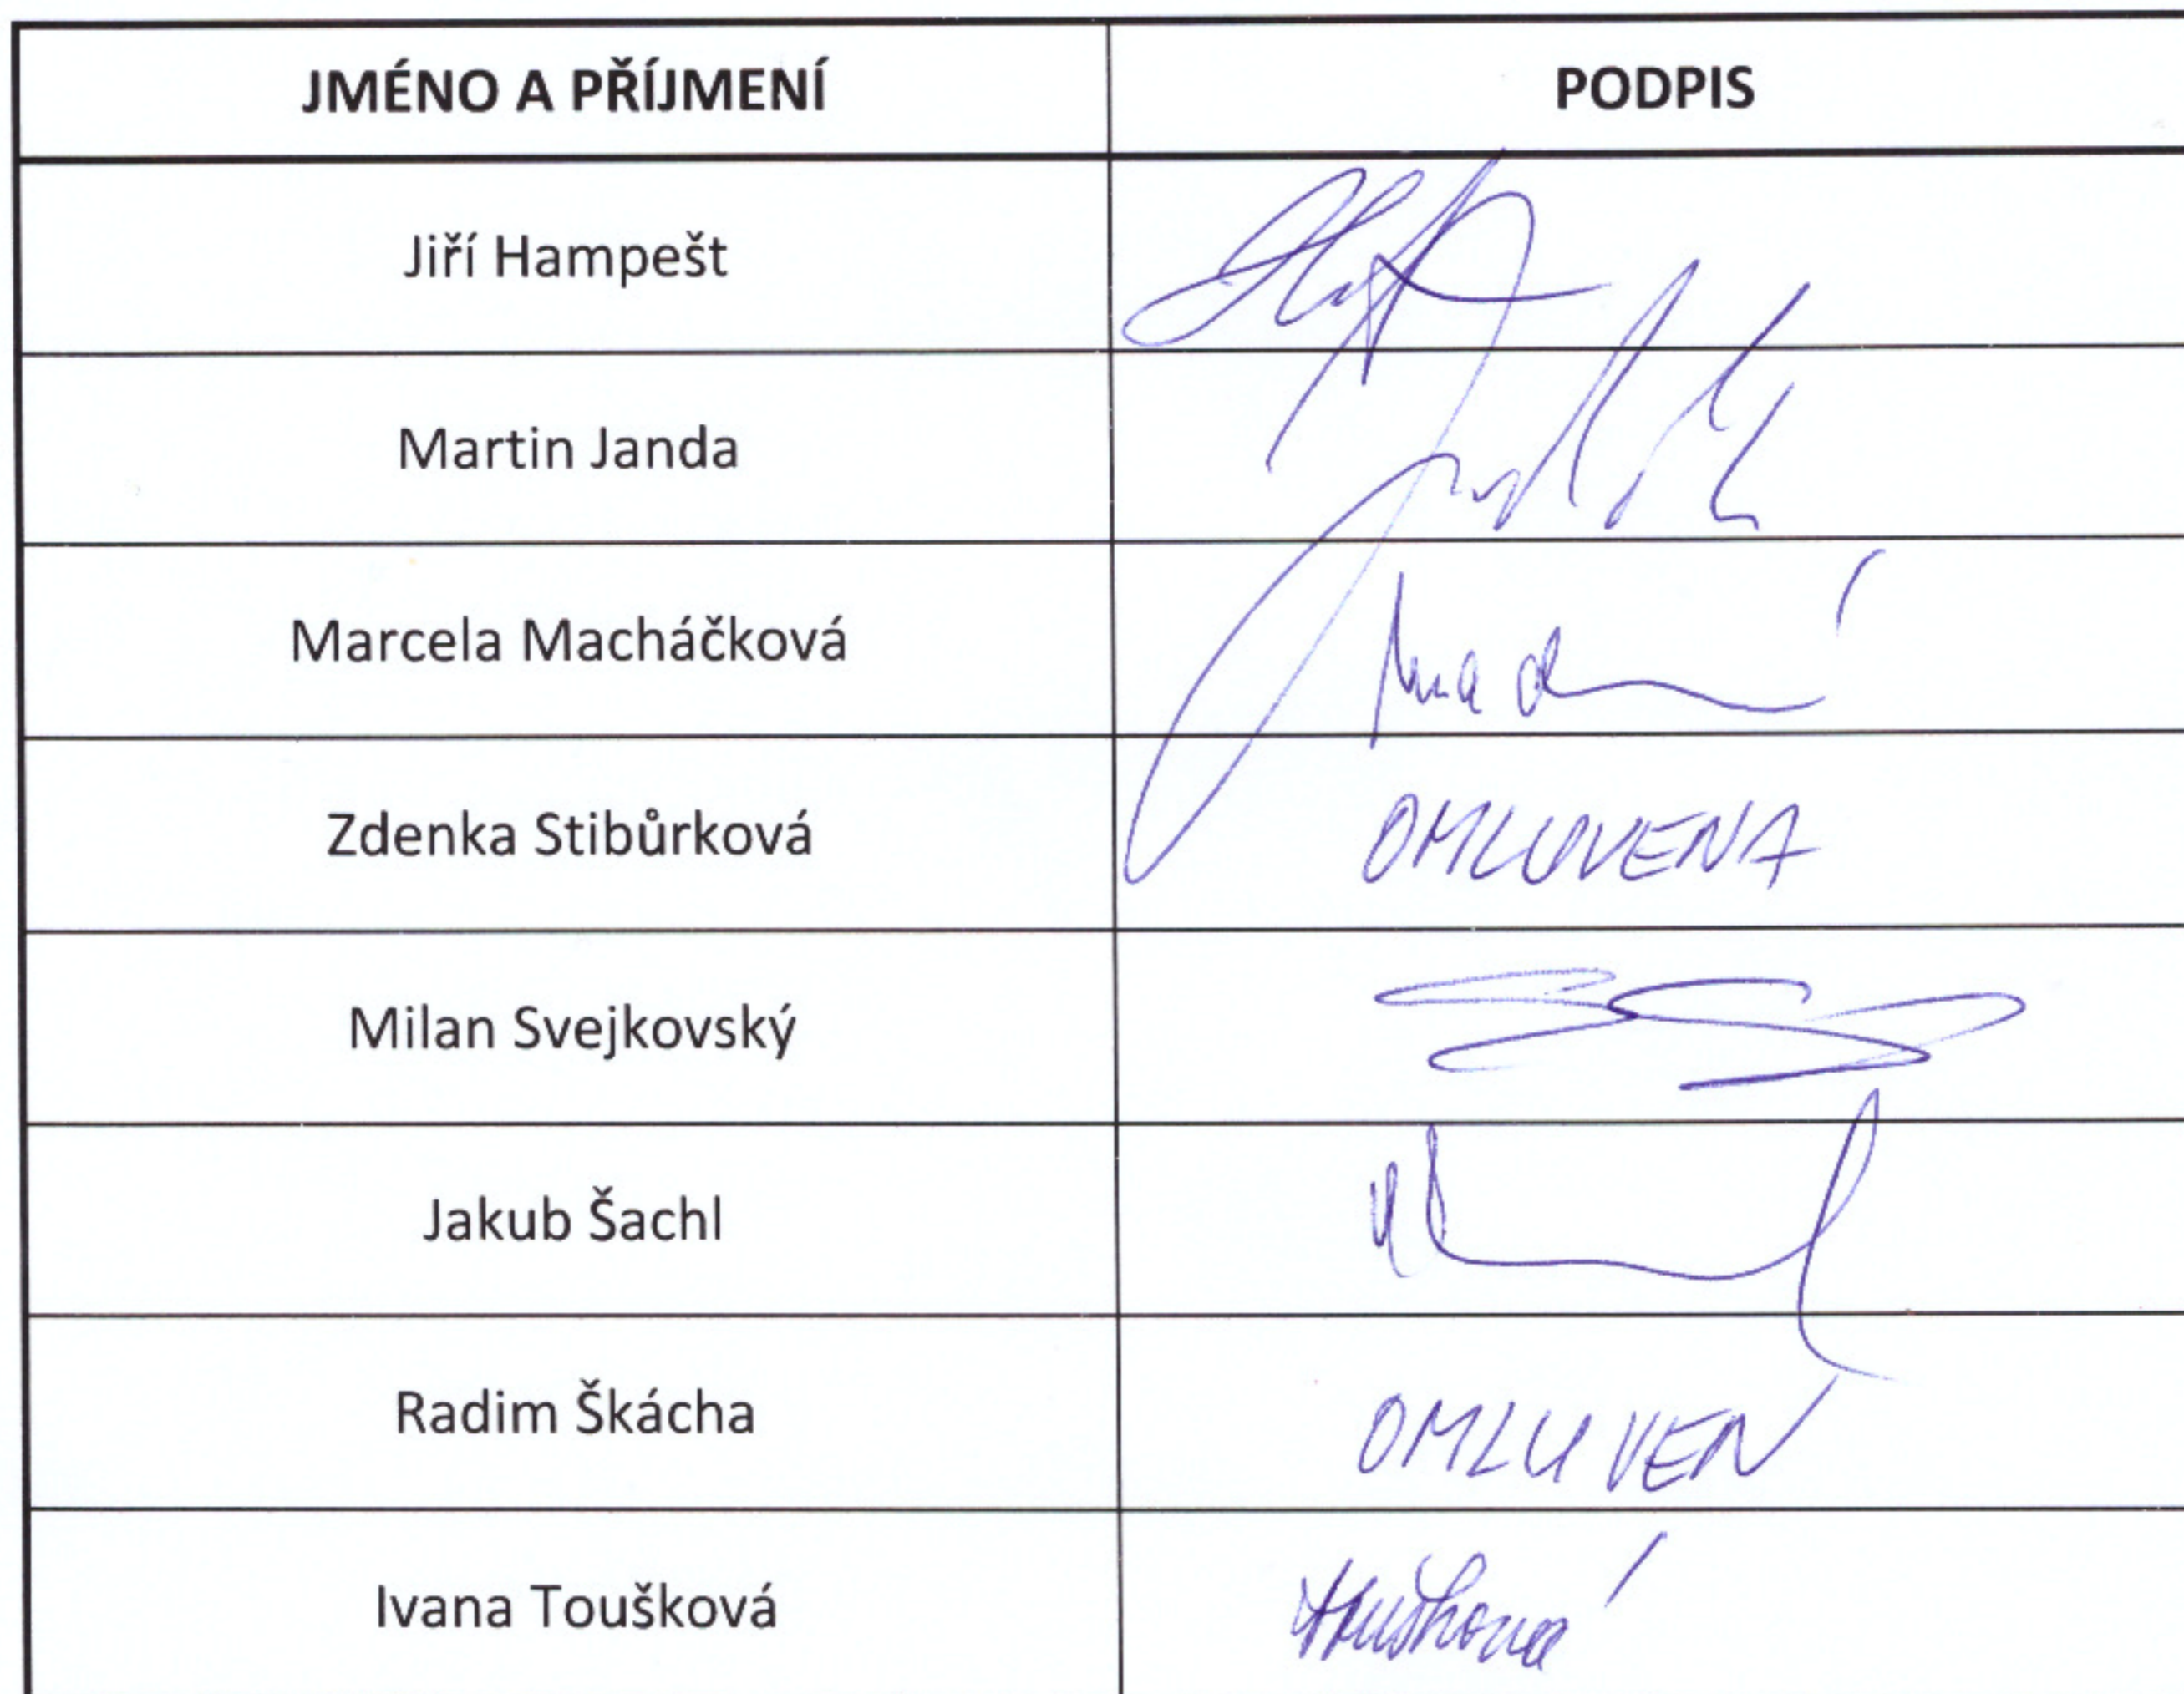 JMÉNO A PŘÍJMENÍ PODPIS
Jiří Hampešt
Martin Janda
Marcela Macháčková
Zdenka Stibůrková OMLUVENA
Milan Svejkovský
Jakub Šachl
Radim Škácha OMLUVEN
Ivana Toušková